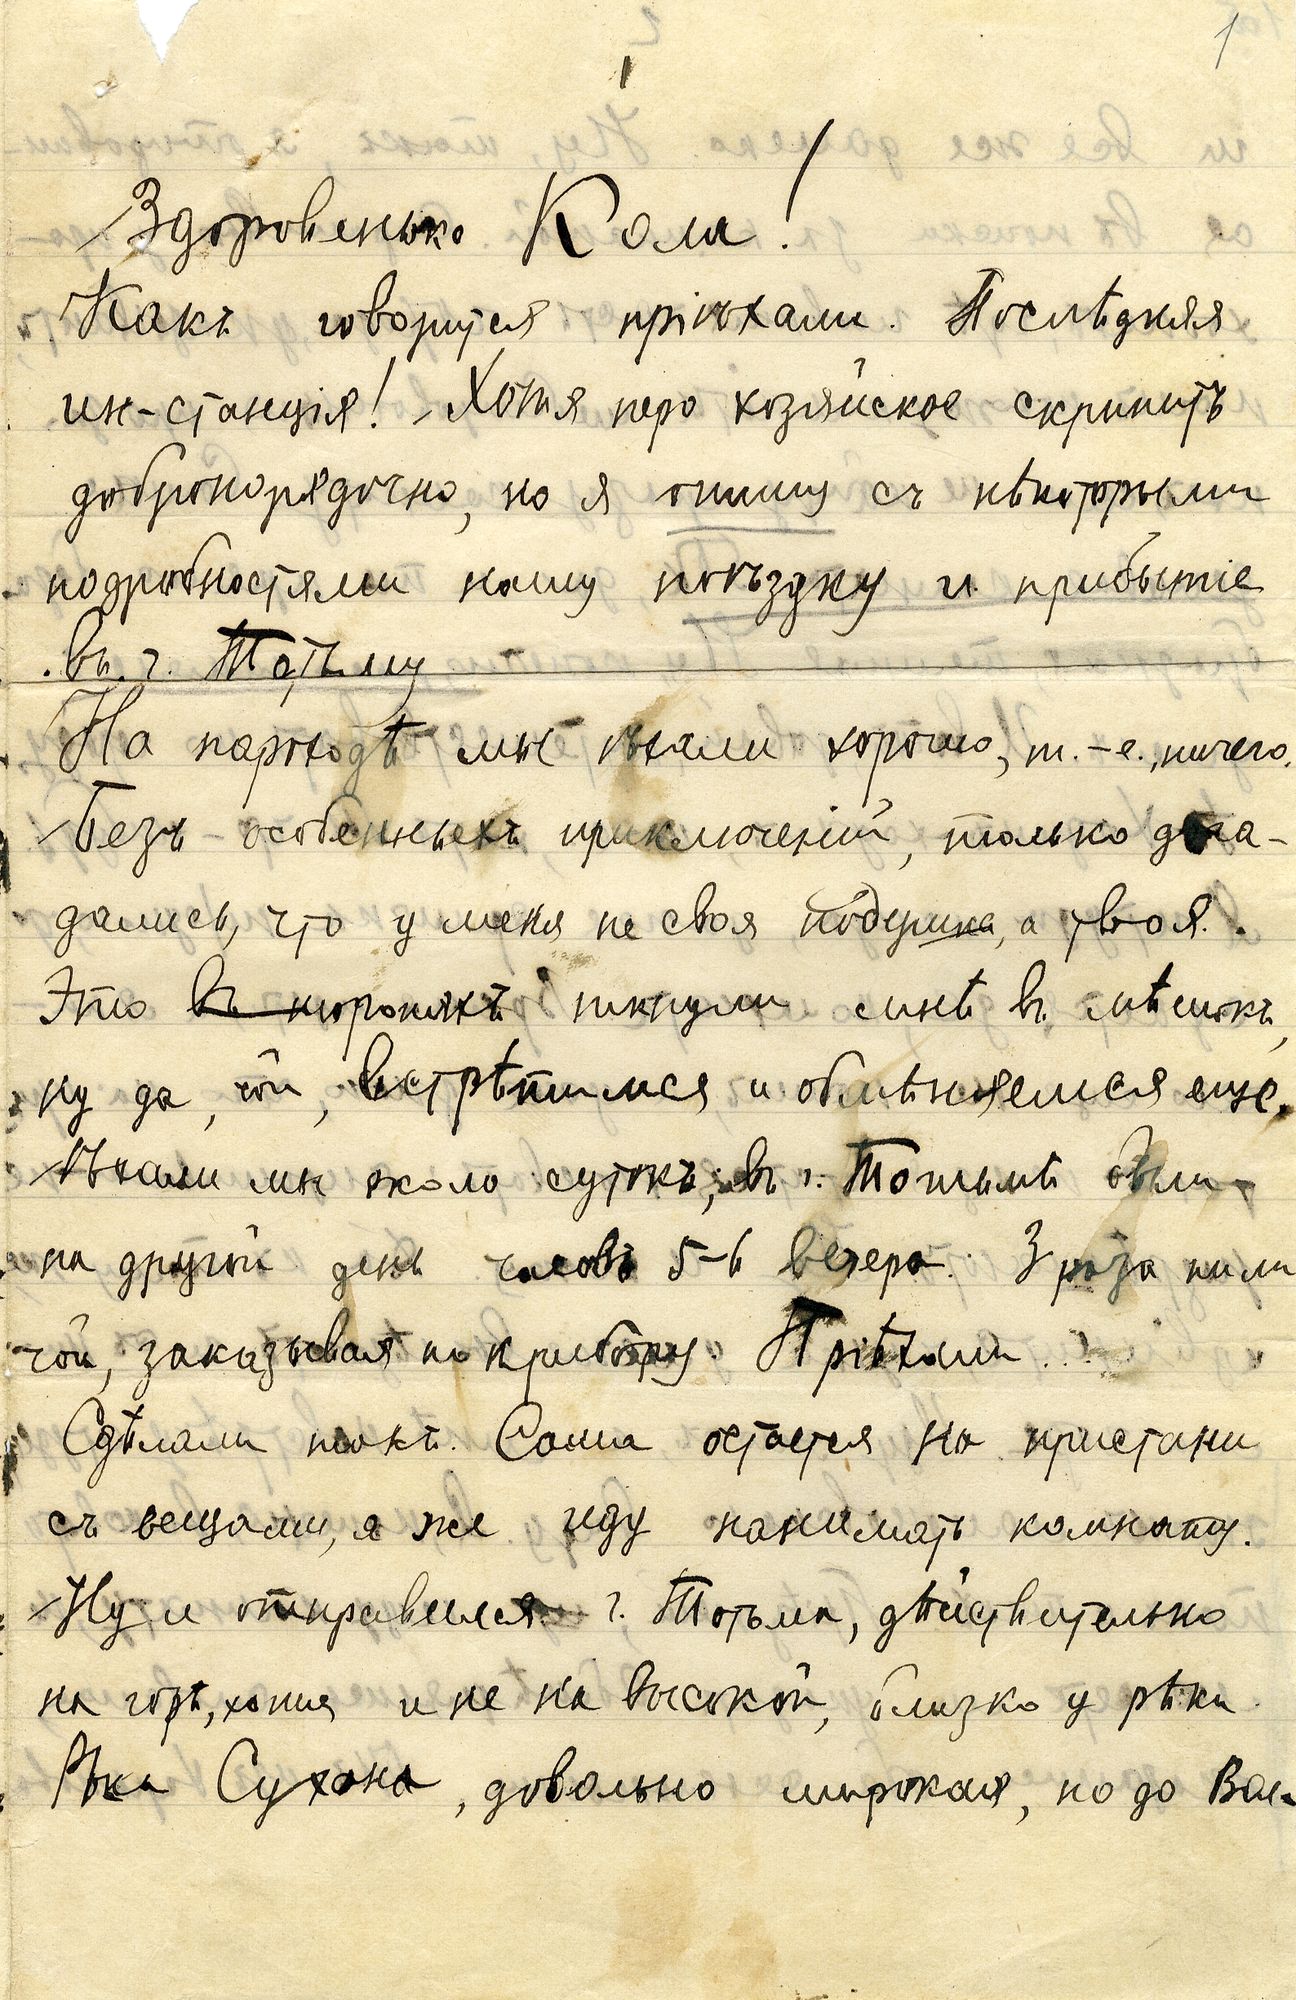 1
Здоровенько Коля!
Какъ говорится пріѣхали. Послѣдняя
ин-станція! Хотя перо хозяйское скрипитъ
добропорядочно, но я опишу съ нѣкоторыми
подробностями нашу поѣздку и прибытіе
въ г. Тотьму
На пароходѣ мы ѣхали хорошо, т.-е., ничего.
Безъ особенныхъ приключеній, только дога-
дались, что у меня не своя подушка, а твоя.
Это въ ткнули мнѣ въ мѣшокъ,
ну да, чай, встрѣтимся и обмѣняемся еще.
Ѣхали мы около сутокъ, въ г. Тотьмѣ были
на другой день часовъ 5-6 вечера. 3 раза пили
чай, заказывая по прибору. Пріѣхали...
Сдѣлали такъ. Саша остается на пристани
съ вещами, я же иду нанимать комнату.
Ну и отправился. г. Тотьма, дѣйствительно
на горѣ, хотя и не на высокой, близко у рѣки.
Рѣка Сухона, довольно широкая, но до Вол-